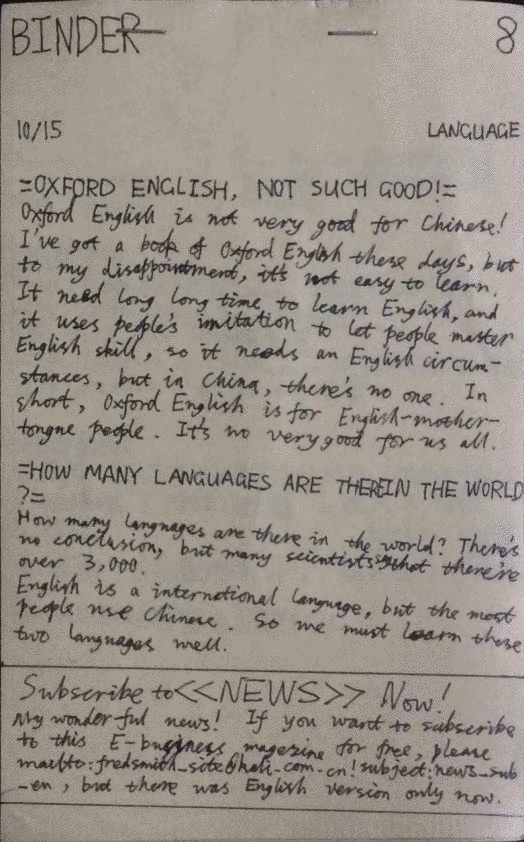 BINDER 8
10/15 LANGUAGE
=OXFORD ENGLISH, NOT SUCH GOOD!=
Oxford English is not very good for Chinese!
I've got a book of Oxford English these days, but
to my disappointment, it's not easy to learn.
It need long long time to learn English, and
it uses people's imitation to let people master
English skill, so it needs an English circum-
stances, but in China, there's no one. In
short, Oxford English is for English-mother-
tongue people. It's no very good for us all.
=HOW MANY LANGUAGES ARE THEREIN THE WORLD
?=
How many languages are there in the world? There's
no conclusion, but many scientists that there're
over 3,000.
English is a international language, but the most
people use Chinese. So we must learn these
two languages well.
Subscribe to <<NEWS>> Now!
My wonderful news! If you want to subscribe
to this E-business magezine for free, please
mailto:fredsmith_site@hali.com.cn!subject:news_sub
-en, but there was English version only now.